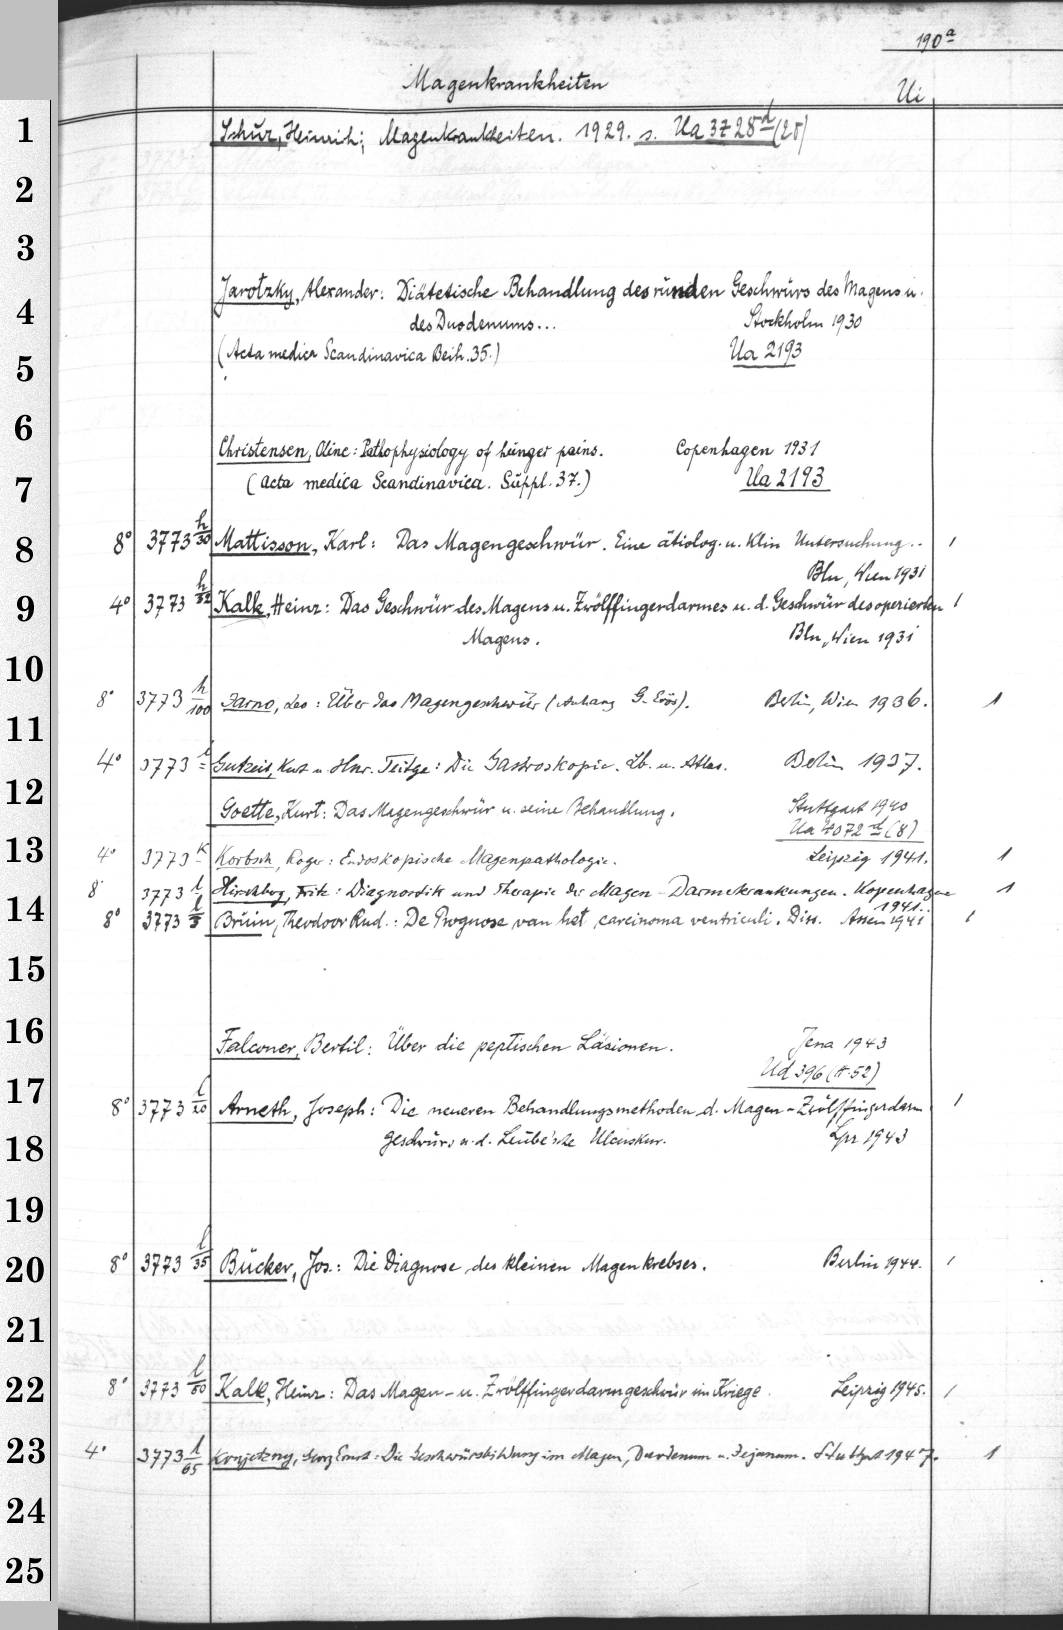 190a
Magenkrankheiten Ui
1 Schur, Heinrich; Magenkrankheiten. 1929. s. Ua 3728d (25)
2
3
Jarotzky, Alexander: Diätetische Behandlung des runden Geschwürs des Magens u.
4 des Duodenums... Stockholm 1930
5 (Acta medica Scandinavica Beih. 35.) Ua 2193
6
Christensen, Oline: Pathophysiology of hunger pains. Copenhagen 1931
7 (Acta medica Scandinavica. Suppl. 37.) Ua 2193
8 8° 3773 h/30 Mattisson, Karl: Das Magengeschwür. Eine ätiolog. u. Klin Untersuchung.. 1
Bln, Wien 1931
9 4° 3773 h/32 Kalk, Heinz: Das Geschwür des Magens u. Zwölffingerdarmes u. d. Geschwür des operierten 1
Magens. Bln, Wien 1931
10
8° 3773 h/100 Jarno, Leo: Über das Magengeschwür (Anhang G. Erös). Berlin, Wien 1936. 1
11
4° 3773 i Gutzeit, Kurt u. Hnr. Teitge: Die Gastroskopie. Lb. u. Atlas. Berlin 1937.
12 Goette, Kurt: Das Magengeschwür u. seine Behandlung. Stuttgart 1940
Ua 4072 d (8)
13 4° 3773 k Korbsch, Roger: Endoskopische Magenpathologie. Leipzig 1941. 1
8° 3773 l Hirschberg, Fritz: Diagnostik und Therapie der Magen-Darmkrankungen. Kopenhagen 1
1941.
14 8° 3773 l/5 Bruin, Theodoor Rud.: De Prognose van het carcinoma ventriculi. Diss. Assen 1941 1
15
16 Falconer, Bertil: Über die peptischen Läsionen. Jena 1943
Ud 396 (H. 52)
17 8° 3773 l/20 Arneth, Joseph: Die neueren Behandlungsmethoden d. Magen-Zwölffingerdarm 1
18 geschwürs u. d. Leube'sche Ulcuskur. Lpz 1943
19
20 8° 3773 l/35 Bücker, Jos.: Die Diagnose des kleinen Magenkrebses. Berlin 1944. 1
21
22 8° 3773 l/60 Kalk, Heinz: Das Magen- u. Zwölffingerdarmgeschwür im Kriege. Leipzig 1945. 1
23 4° 3773 l/65 Konjetzny, Georg Ernst: Die Geschwürsbildung im Magen, Duodenum u. Jejunum. Stuttgart 1947. 1
24
25